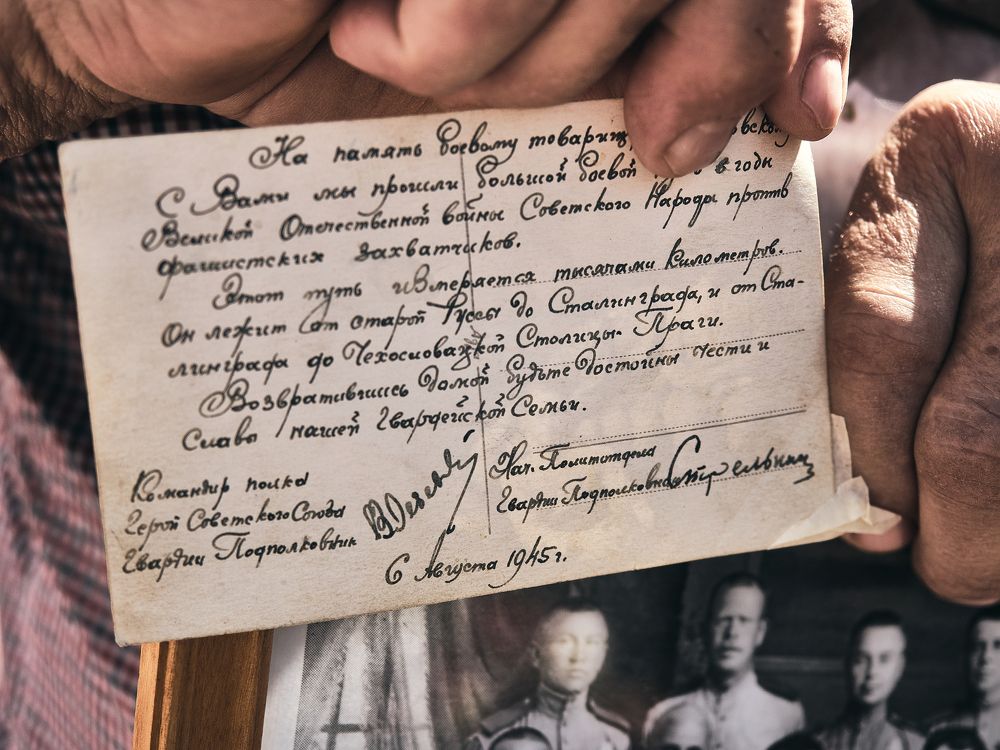 На память боевому товарищ
С Вами мы прошли большой боевой в годы
Великой Отечественной войны Советского Народа против
фашистских захватчиков.
Этот путь измеряется тысячами километров.
Он лежит от старой Руссы до Сталинграда, и от Ста-
линграда до Чехословацкой Столицы- Праги.
Возвратившись домой будьте достойны чести и
славы нашей Гвардейской Семьи.
Командир полка
Герой Советского Союза
Гвардии Подполковник
Нач. Политотдела
Гвардии Подполковник
6 Августа 1945г.